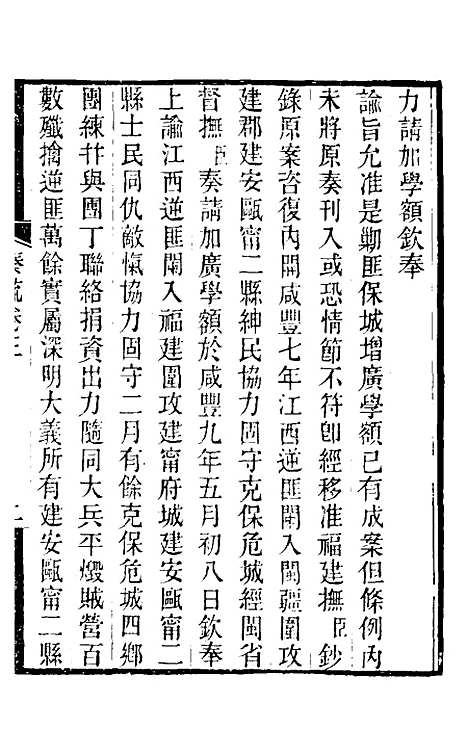 力請加學額欽奉
諭旨允准是勦匪保城增廣學額已有成案但條例內
未將原奏刊入或恐情節不符卽經移准福建撫臣鈔
錄原案咨復內開咸豐七年江西逆匪闌入閩疆圍攻
建郡建安甌甯二縣紳民協力固守克保危城經閩省
督撫臣奏請加廣學額於咸豐九年五月初八日欽奉
上諭江西逆匪闌入福建圍攻建甯府城建安甌甯二
縣士民同仇敵愾協力固守二月有餘克保危城四鄉
團練幷與團丁聯絡捐資出力隨同大兵平燬賊營百
數殲擒逆匪萬餘實屬深明大義所有建安甌甯二縣
奏疏卷三